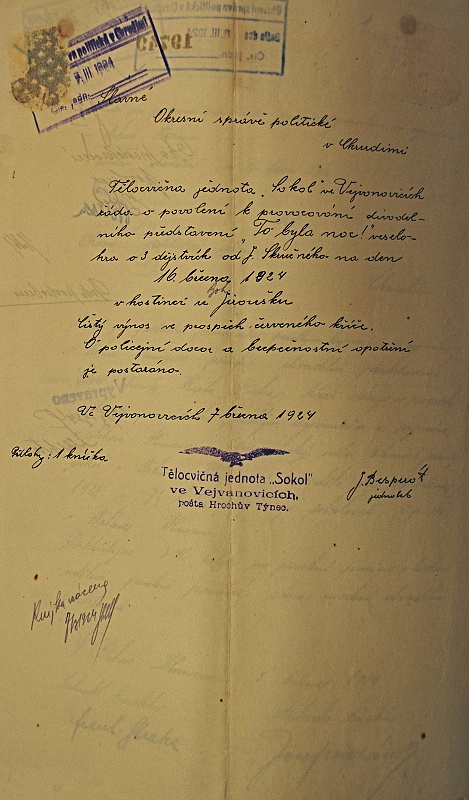 politické v Chrudimi
III. 1924
Slavné
Okresní správě politické
v Chrudimi
Tělocvičná jednota "Sokol" ve Vejvonovicích
žádá o povolení k provozování divadel-
ního představení "To byla noc!" veselo-
hra o 3 dějstvích od J. Skružného na den
16. března 1924
v hostinci u Jirousku
čistý výnos ve prospěch červeného kříže.
O policejní dozor a bezpečnostní opatření
je postaráno.
Ve Vejvonovicích 7 března 1924
Přílohy: 1 knížka
Tělocvičná jednota „Sokol"
ve Vejvanovicích,
pošta Hrochův Týnec.
jednatel